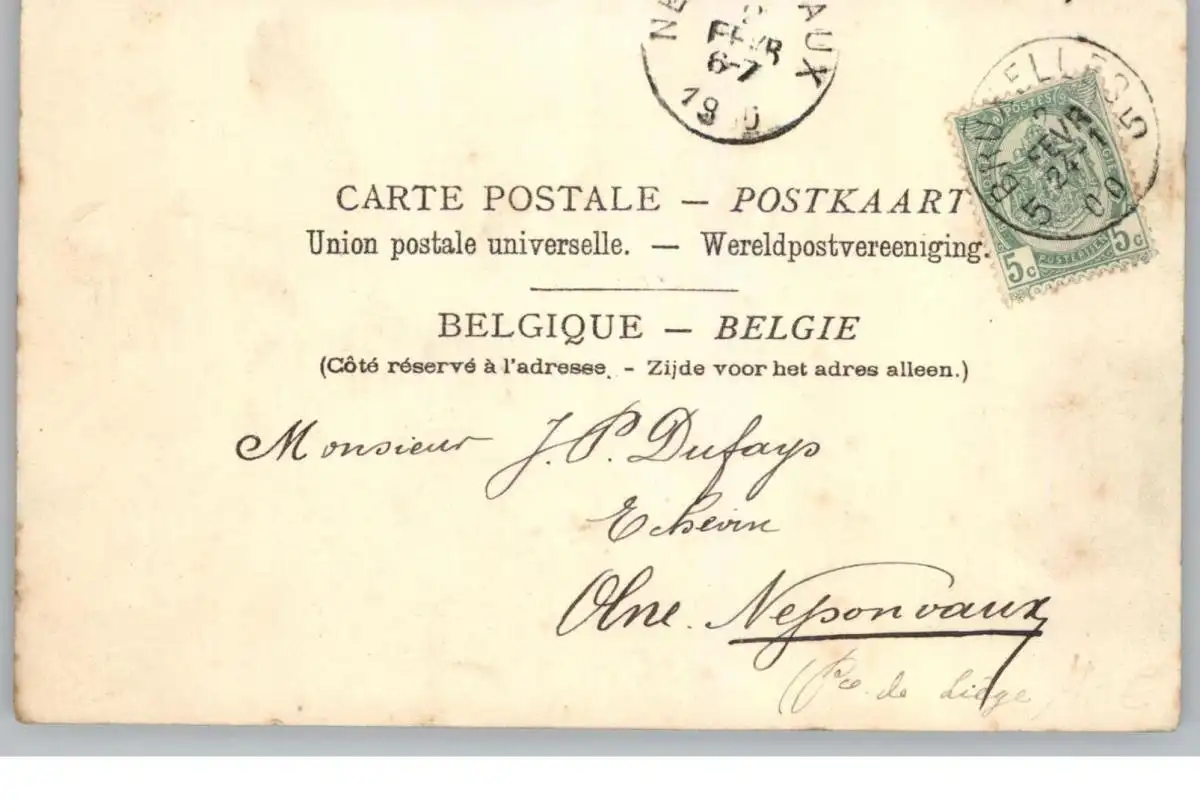 NE AUX
2
FEVR
6-7
19 0
BRUXELLES 5
2
FEVR
24-
00
5
POSTES
5c POSTERIJEN 5c
CARTE POSTALE — POSTKAART
Union postale universelle. — Wereldpostvereeniging.
BELGIQUE — BELGIE
(Côté réservé à l'adresse. - Zijde voor het adres alleen.)
Monsieur J. P. Dufays
Echevin
Olne. Nessonvaux
(Pce. de Liége)